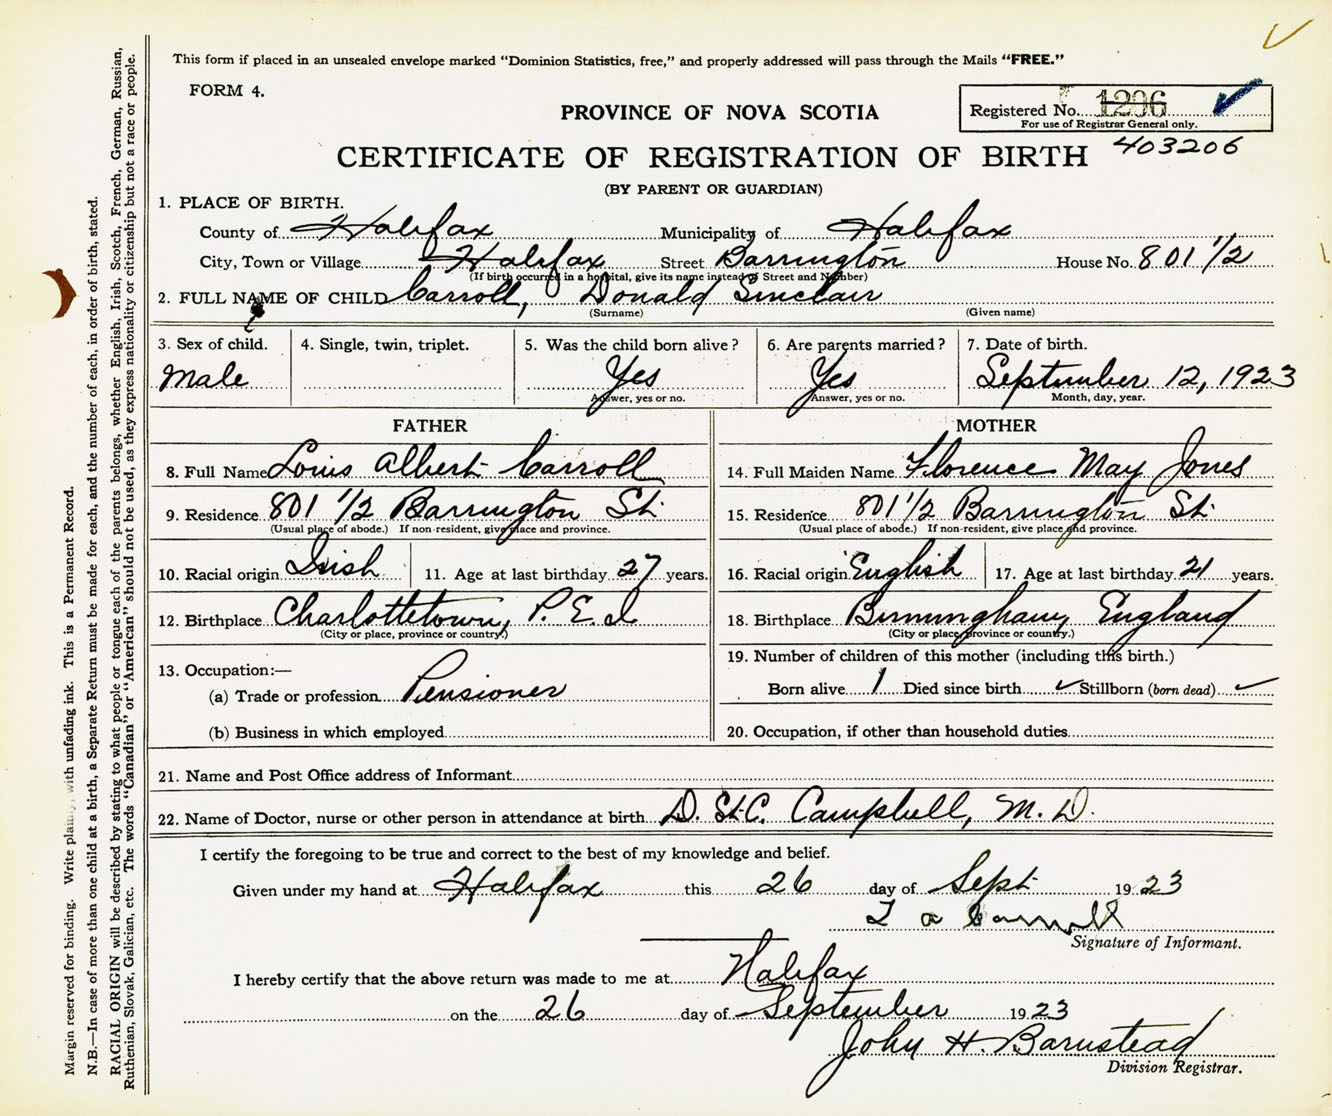 This form if placed in an unsealed envelope marked “Dominion Statistics, free,” and properly addressed will pass through the Mails “FREE.”
FORM 4.
PROVINCE OF NOVA SCOTIA
Registered No. 1206
For use of Registrar General only.
403206
CERTIFICATE OF REGISTRATION OF BIRTH
(BY PARENT OR GUARDIAN)
1. PLACE OF BIRTH.
County of Halifax Municipality of Halifax
City, Town or Village Halifax Street Barrington House No. 801 1/2
(If birth occurred in a hospital, give its name instead of Street and Number)
2. FULL NAME OF CHILD Carroll, Donald Sinclair
(Surname) (Given name)
3. Sex of child. 4. Single, twin, triplet. 5. Was the child born alive? 6. Are parents married? 7. Date of birth.
Male Yes Yes September 12, 1923
Answer, yes or no. Answer, yes or no. Month, day, year.
FATHER
8. Full Name Louis Albert Carroll
9. Residence 801 1/2 Barrington St.
(Usual place of abode.) If non-resident, give place and province.
10. Racial origin Irish 11. Age at last birthday 27 years.
12. Birthplace Charlottetown, P.E.I
(City or place, province or country.)
13. Occupation:—
(a) Trade or profession Pensioner
(b) Business in which employed
MOTHER
14. Full Maiden Name Florence May Jones
15. Residence 801 1/2 Barrington St.
(Usual place of abode.) If non-resident, give place and province.
16. Racial origin English 17. Age at last birthday 21 years.
18. Birthplace Birmingham, England
(City or place, province or country.)
19. Number of children of this mother (including this birth.)
Born alive 1 Died since birth ✓ Stillborn (born dead) ✓
20. Occupation, if other than household duties
21. Name and Post Office address of Informant
22. Name of Doctor, nurse or other person in attendance at birth D. St.C. Campbell, M.D.
I certify the foregoing to be true and correct to the best of my knowledge and belief.
Given under my hand at Halifax this 26 day of Sept. 1923
L A Carroll
Signature of Informant.
I hereby certify that the above return was made to me at Halifax
on the 26 day of September 1923
John H. Barnstead
Division Registrar.
Margin reserved for binding. Write plainly, with unfading ink. This is a Permanent Record.
N.B.—In case of more than one child at a birth, a Separate Return must be made for each, and the number of each, in order of birth, stated.
RACIAL ORIGIN will be described by stating to what people or tongue each of the parents belongs, whether English, Irish, Scotch, French, German, Russian,
Ruthenian, Slovak, Galician, etc. The words “Canadian” or “American” should not be used, as they express nationality or citizenship but not a race or people.